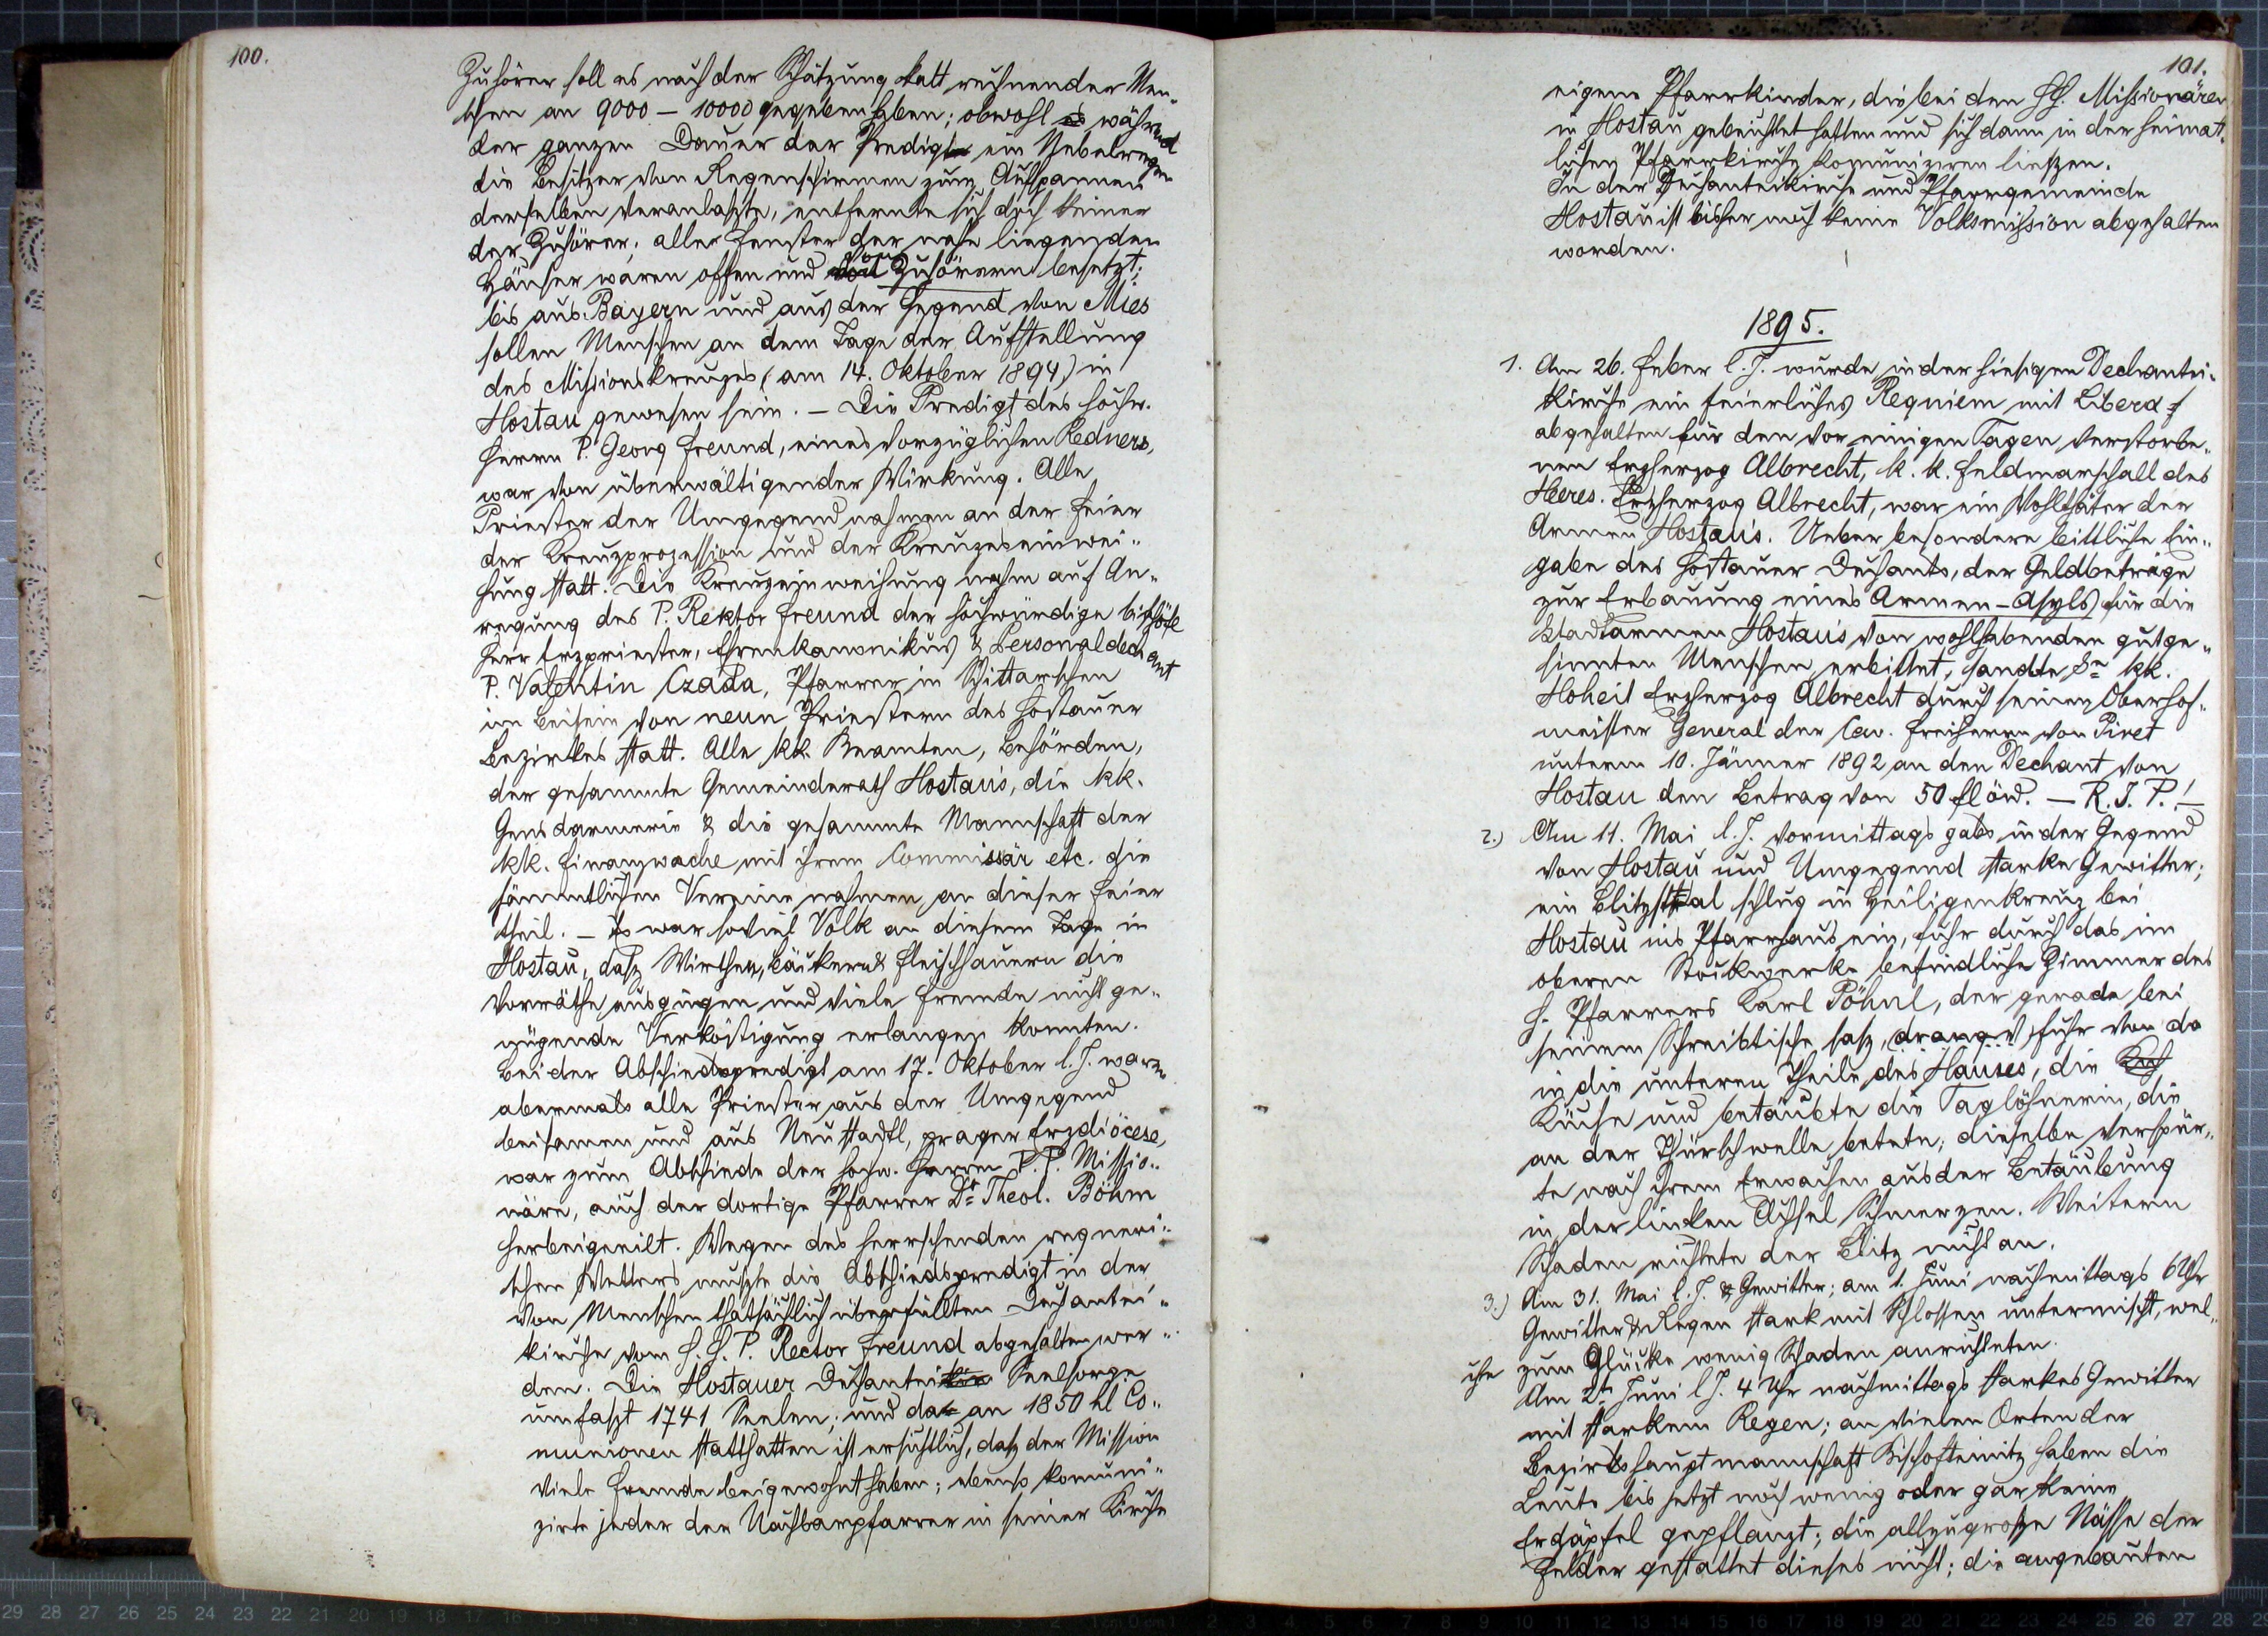 100.
Zuhörer soll es nach der Schätzung statt rechnender Men-
schen an 9000 – 10000 gegeben haben; obwohl während
der ganzen Dauer der Predigt ein Nebelregen
die Besitzer von Regenschirmen zum Aufspannen
derselben veranlaßte, entfernte sich doch keiner
der Zuhörer; aller Fenster der nahe liegenden
Häuser waren offen und von Zuhörern besetzt;
bis aus Bayern und aus der Gegend von Mies
sollen Menschen an dem Tage der Aufstellung
des Missionskreuzes (am 14. Oktober 1894) in
Hostau gewesen sein. – Die Predigt des hochw.
Herrn P. Georg Freund, eines vorzüglichen Redners,
war von überwältigender Wirkung. Alle
Priester der Umgegend nahmen an der Feier
der Kreuzprozession und der Kreuzeseinwei-
hung statt. Die Kreuzeinweihung nahm auf An-
regung des P. Rektor Freund der hochwürdige bischöfl
Herr Erzpriester, Ehrenkanonikus & Personaldechant
P. Valentin Czada, Pfarrer in Schittarschen
im Beisein von neun Priestern des Hostauer
Bezirkes statt. Alle kk. Beamten, Behörden,
der gesammte Gemeinderath Hostau's, die kk.
Gensdarmerie & die gesammte Mannschaft der
kk. Finanzwache mit ihrem Commissär etc. die
sämmtlichen Vereine nahmen an dieser Feier
theil. – Es war soviel Volk an diesem Tage in
Hostau, daß Wirthen, Bäckern & Fleischhauern die
Vorräthe ausgingen und viele Fremde nicht ge-
nügende Verköstigung erlangen konnten.
Bei der Abschiedspredigt am 17. Oktober l. J. waren
abermals alle Priester aus der Umgegend
beisamen und aus Neustadtl, prager Erzdiöcese,
war zum Abschiede der hochw. Herrn P. P. Missio-
näre, auch der dortige Pfarrer Dr Theol. Böhm
herbeigeeilt. Wegen des herrschenden regneri-
schen Wetters mußte die Abschiedspredigt in der
von Menschen thatsächlich überfüllten Dechantei-
kirche vom H. H. P. Rector Freund abgehalten wer-
den. Die Hostauer Dechantei Seelsorge
umfaßt 1741 Seelen; und da an 1850 hl Co-
munionen statthatten ist ersichtlich, daß der Mission
viele Fremde beigewohnt haben; ebenso komuni-
zirte jeder der Nachbarpfarrer in seiner Kirche
101.
eigene Pfarrkinder, die bei den HH. Missionären
in Hostau gebeichtet hatten und sich dann in der heimat-
lichen Pfarrkirche komuniziren ließen.
In der Dechanteikirche und Pfarrgemeinde
Hostau ist bisher noch keine Volksmission abgehalten
worden.
1895.
1. Am 26. Feber l. J. wurde in der hiesigen Dechantei-
kirche ein feierliches Requiem mit Libera
abgehalten für den vor einigen Tagen verstorbe-
nen Erzherzog Albrecht, k. k. Feldmarschall des
Heeres. Erzherzog Albrecht, war ein Wohlthäter der
Armen Hostau's. Ueber besondere bittliche Ein-
gabe des Hostauer Dechants, der Geldbeträge
zur Erbauung eines Armen-Asyls für die
Stadtarmen Hostau's von wohlhabenden gutge-
sinnten Menschen erbittet, sandte Se kk.
Hoheit Erzherzog Albrecht durch seinen Oberhof-
meister General der Cav. Freiherrn von Piret
unterm 10. Jänner 1892 an den Dechant von
Hostau den Betrag von 50 fl öw. – R. I. P.! –
2.) Am 11. Mai l. J. vormittags gabs in der Gegend
von Hostau und Umgegend starke Gewitter;
ein Blitzstral schlug in Heiligenkreuz bei
Hostau ins Pfarrhaus ein, fuhr durch das im
oberen Stockwerke befindliche Zimmer des
H. Pfarrers Karl Pöhnl, der gerade bei
seinem Schreibtische saß, drang u. fuhr von da
in die unteren Theile des Hauses, die Kuch
Küche und betäubte die Taglöhnerin, die
an der Thürschwelle betete; dieselbe verspür-
te nach ihrem Erwachen aus der Betäubung
in der linken Achsel Schmerzen. Weitern
Schaden richtete der Blitz nicht an.
3.) Am 31. Mai l. J. Gewitter; am 1. Juni nachmittags 6 Uhr
Gewitter & Regen stark mit Schlossen untermischt, wel-
che zum Glücke wenig Schaden anrichteten.
Am 2ten Juni l J. 4 Uhr nachmittags starkes Gewitter
mit starkem Regen; an vielen Orten der
Bezirkshauptmannschaft Bischofteinitz haben die
Leute bis jetzt noch wenig oder gar keine
Erdäpfel gepflanzt; die allzugroße Nässe der
Felder gestattet dieses nicht; die angebauten
29 28 27 26 25 24 23 22 21 20 19 18 17 16 15 14 13 12 11 10 9 8 7 6 5 4 3 2 1 cm 0 cm 1 2 3 4 5 6 7 8 9 10 11 12 13 14 15 16 17 18 19 20 21 22 23 24 25 26 27 28